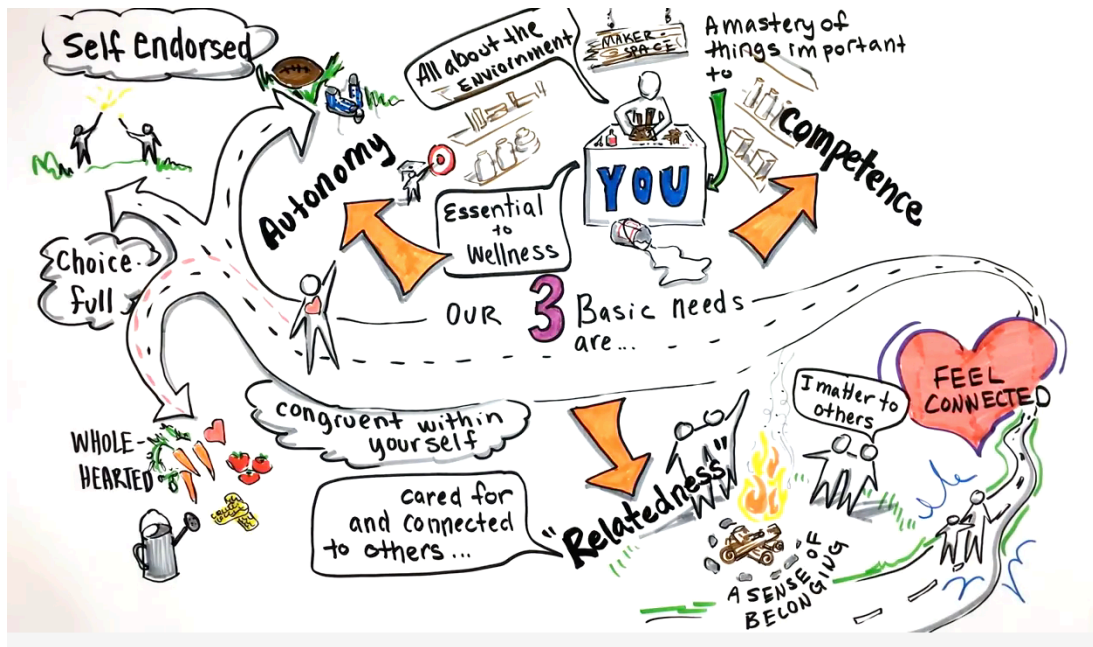 Self Endorsed
All about the
Enviornment
MAKER-
SPACE
A mastery of
things important
to
YOU
Competence
Autonomy
Essential
to
Wellness
Choice-
full
OUR 3 Basic needs
are...
WHOLE-
HEARTED
congruent within
yourself
cared for
and connected
to others...
"Relatedness"
I matter to
others
FEEL
CONNECTED
A SENSE OF
BELONGING